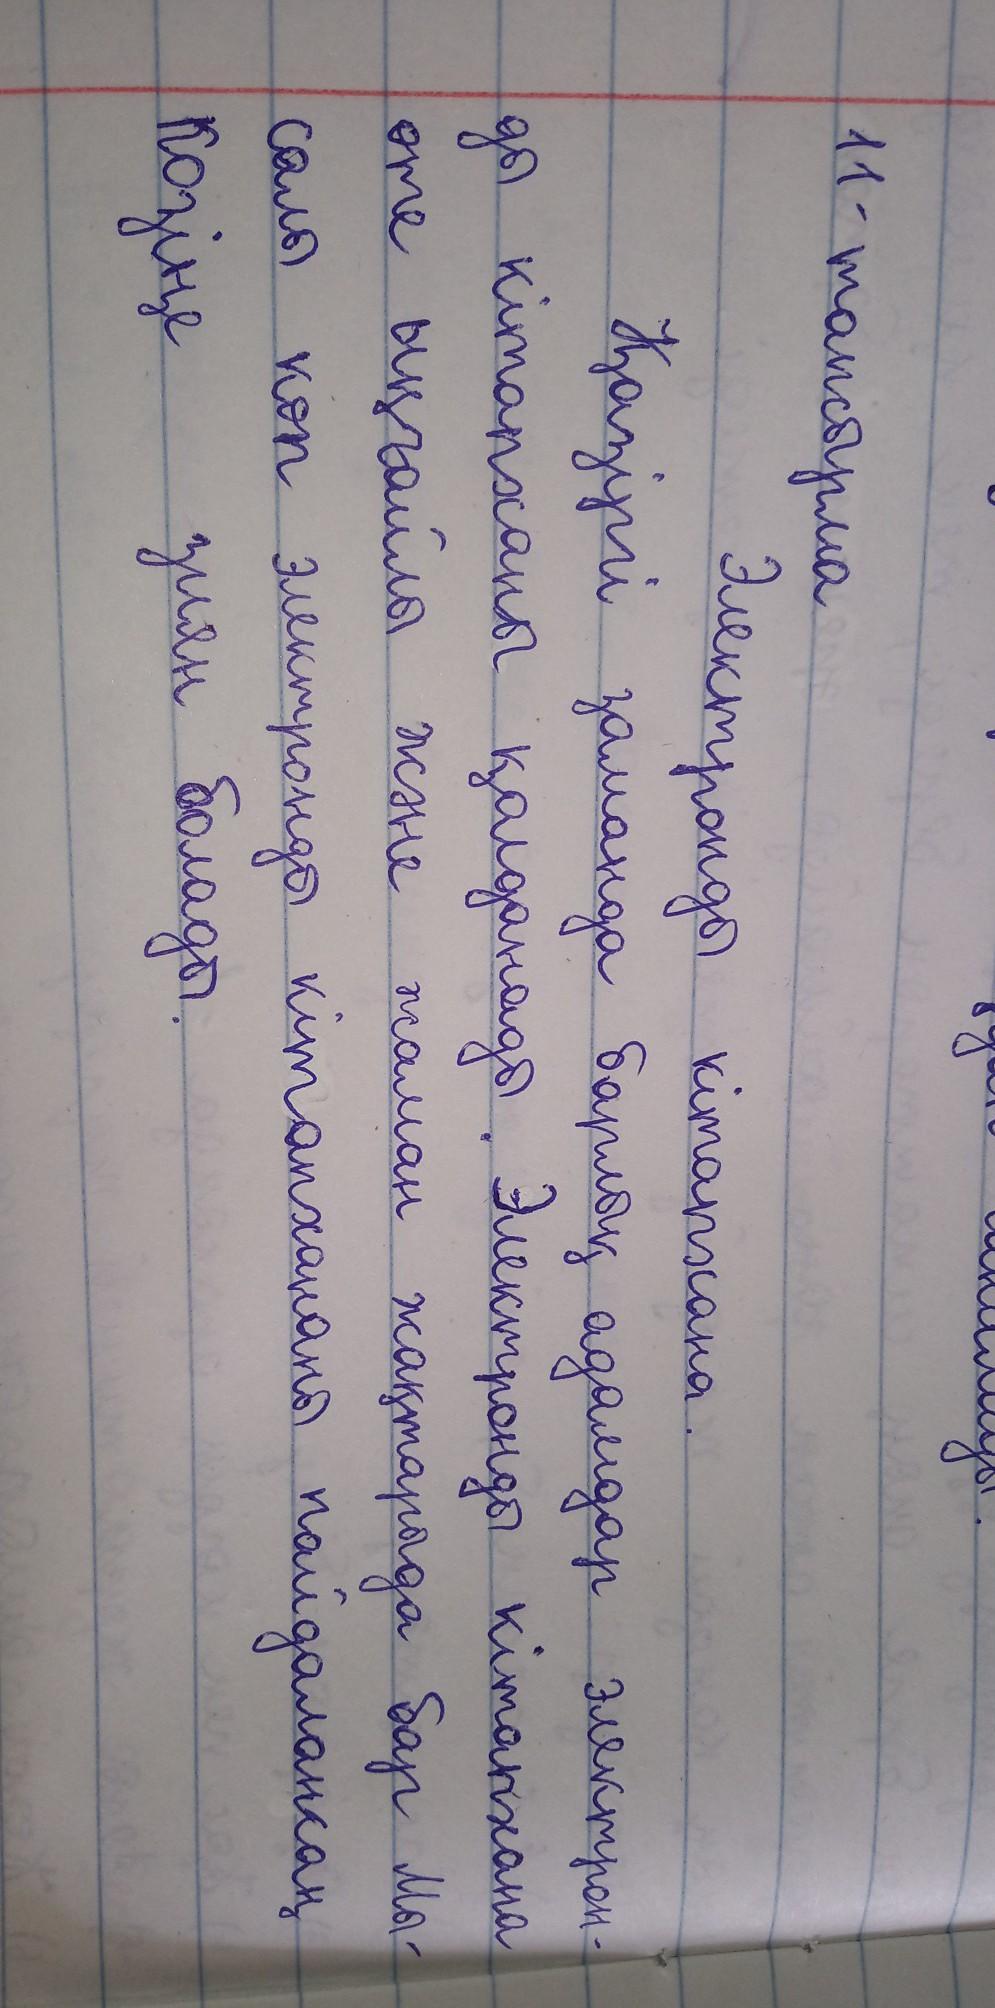 11-тапсырма
Электронды кітапхана.
Қазіргі заманда барлық адамдар электрон-
ды кітапханы қалданады. Электронды кітапхана
өте ыңғайлы және жаман жақтарыда бар Мы-
салы көп электронды кітапханаы пайдалансаң
көзіңе зиян болады.